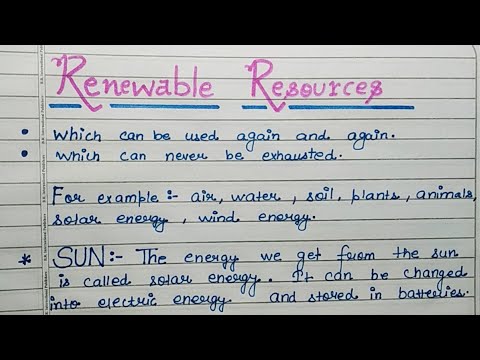 Renewable Resources
• Which can be used again and again.
• Which can never be exhausted.
For example :- air, water, soil, plants, animals,
solar energy, wind energy.
* SUN:- The energy we get from the sun
is called solar energy. It can be changed
into electric energy and stored in batteries.